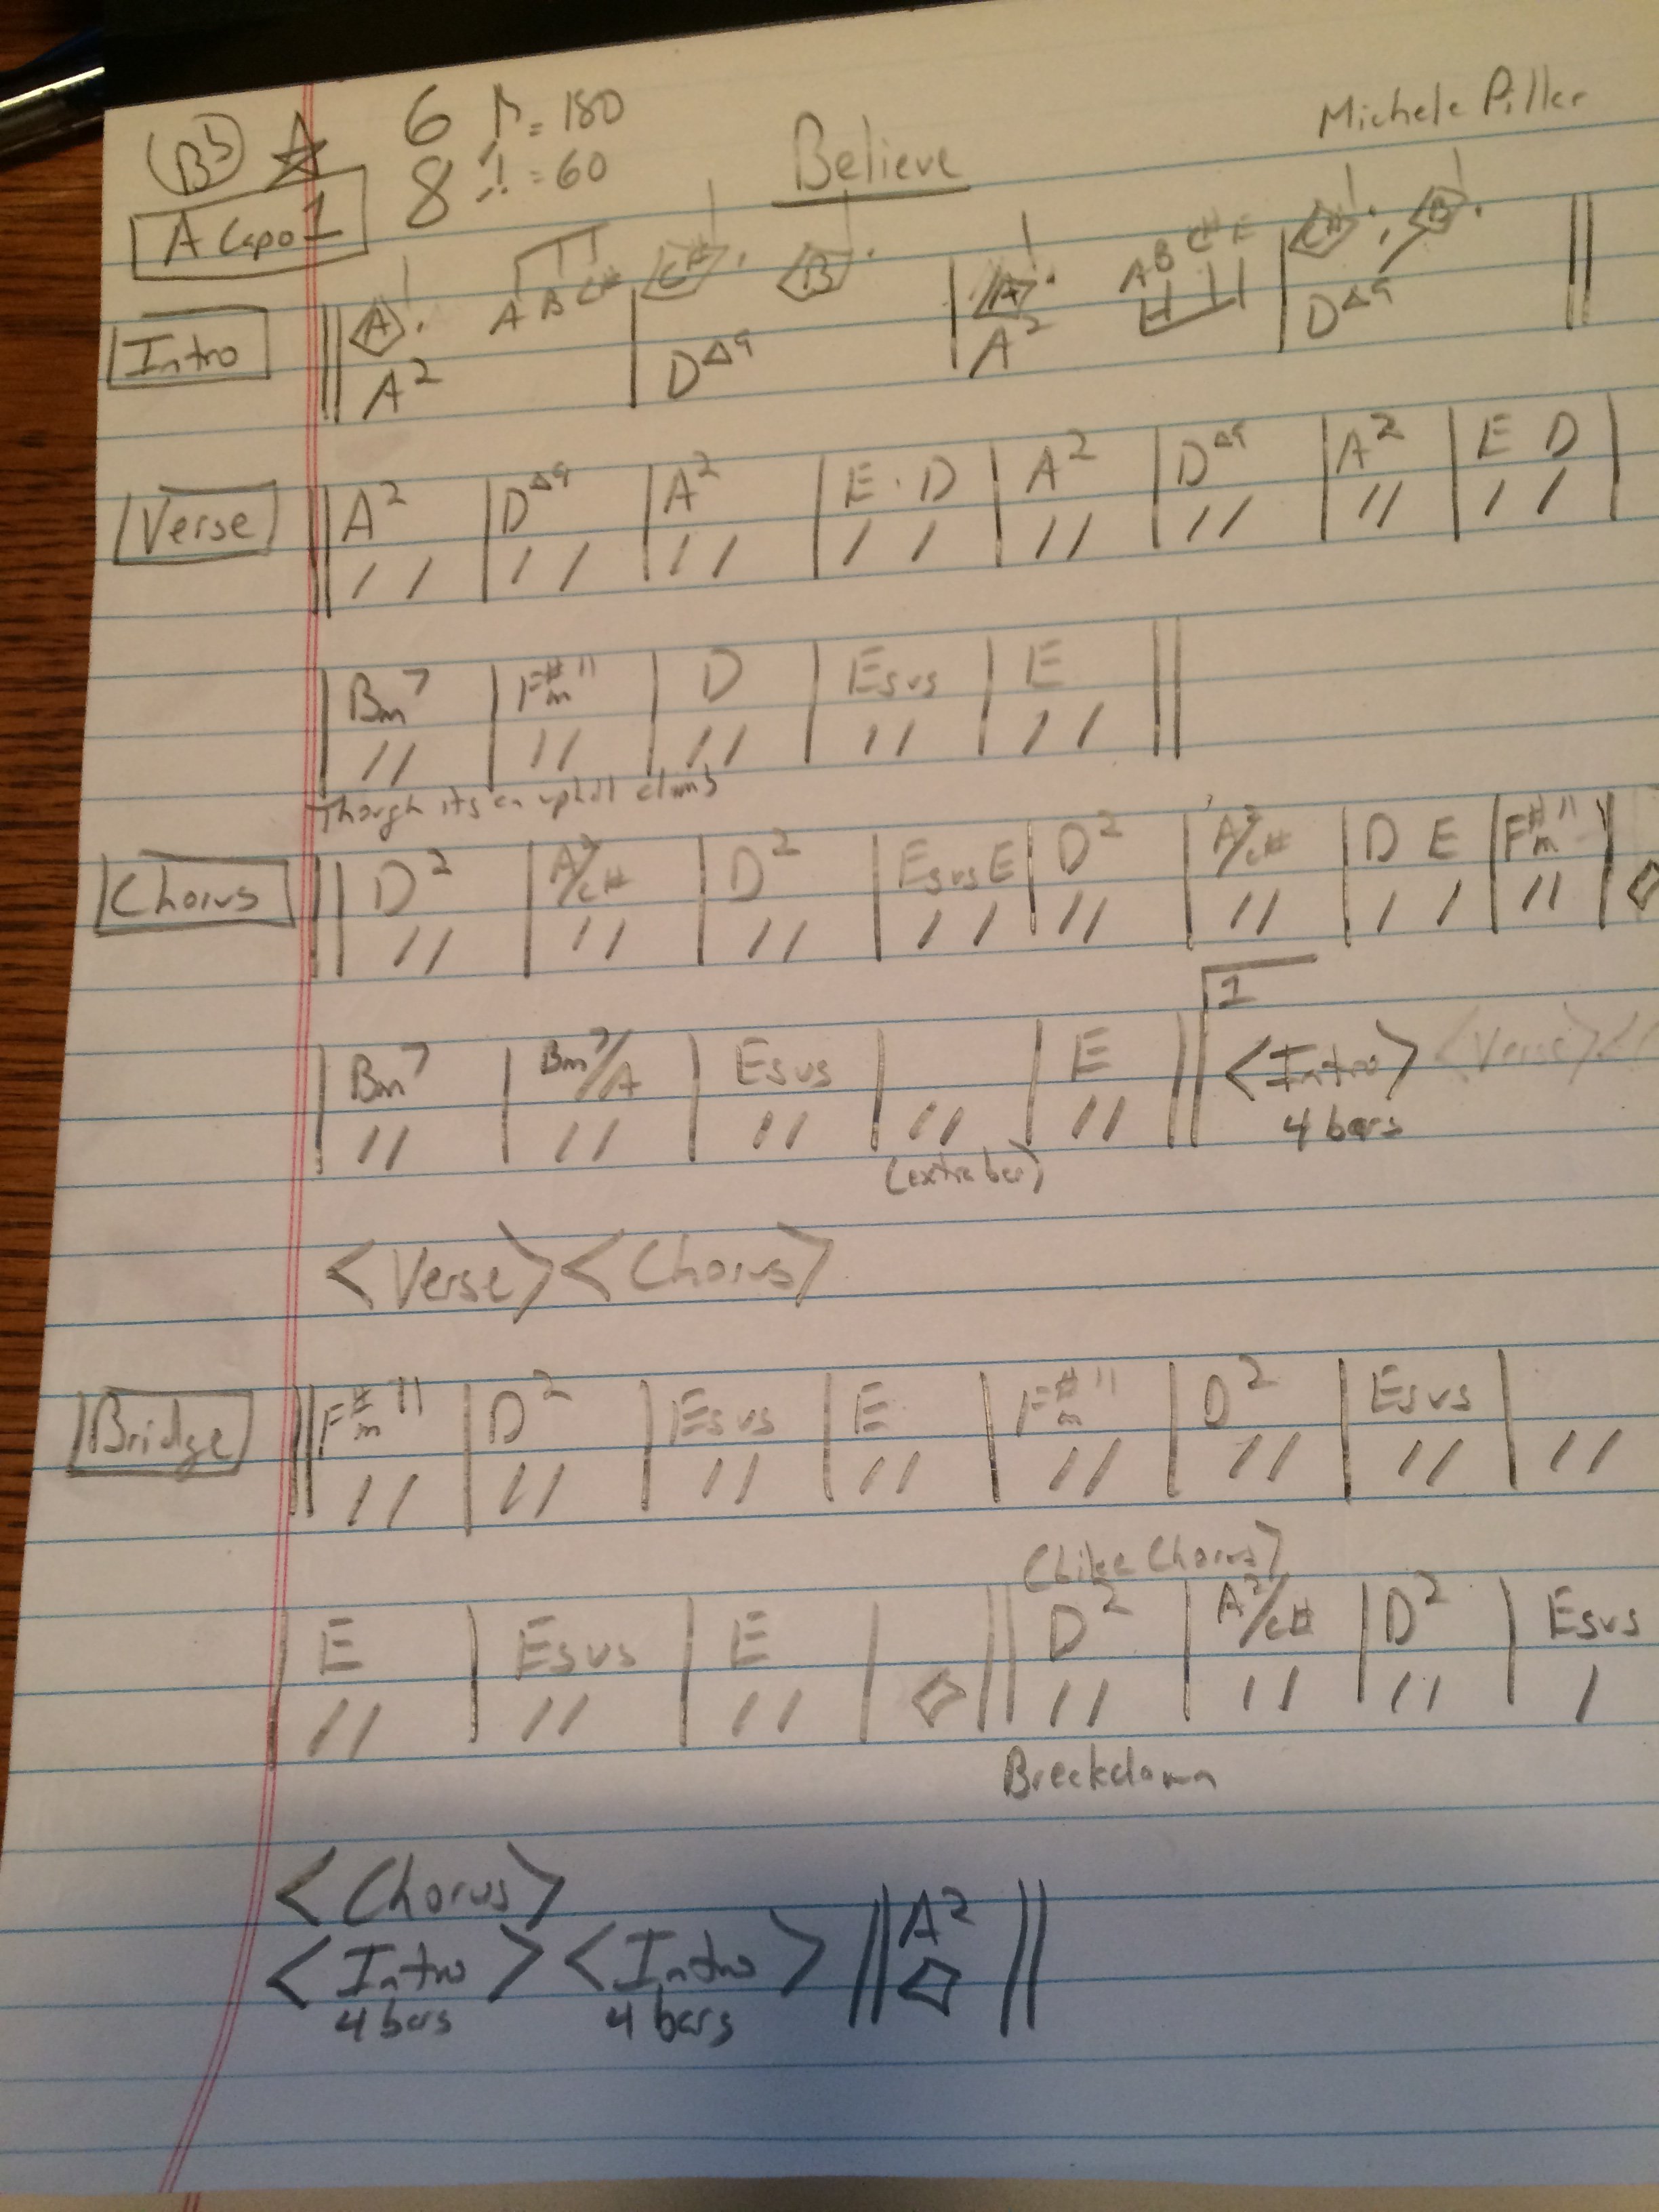 (Bb) A 6 ♪ = 180 Believe Michele Piller
8 ♩. = 60
A Capo 1
A. A B C# C#. B. A. A B C# E C#. B.
Intro || A2 | DΔ9 | A2 | DΔ9 ||
Verse || A2 | DΔ9 | A2 | E . D | A2 | DΔ9 | A2 | E D |
/ / / / / / / / / / / / / / / /
| Bm7 | F#m11 | D | Esus | E ||
/ / / / / / / / / /
Though its an uphill climb
Chorus || D2 | A2/C# | D2 | Esus E | D2 | A2/C# | D E | F#m11 | ◇
/ / / / / / / / / / / / / / / /
| Bm7 | Bm7/A | Esus | | E || 1 <Intro> <Verse> <
/ / / / / / / / / / 4 bars
(extra bar)
<Verse> <Chorus>
Bridge || F#m11 | D2 | Esus | E | F#m11 | D2 | Esus |
/ / / / / / / / / / / / / / / /
(Like Chorus)
E | Esus | E | ◇ || D2 | A2/C# | D2 | Esus
/ / / / / / / / / / / / /
Breakdown
<Chorus>
<Intro> <Intro> || A2 ◇ ||
4 bars 4 bars